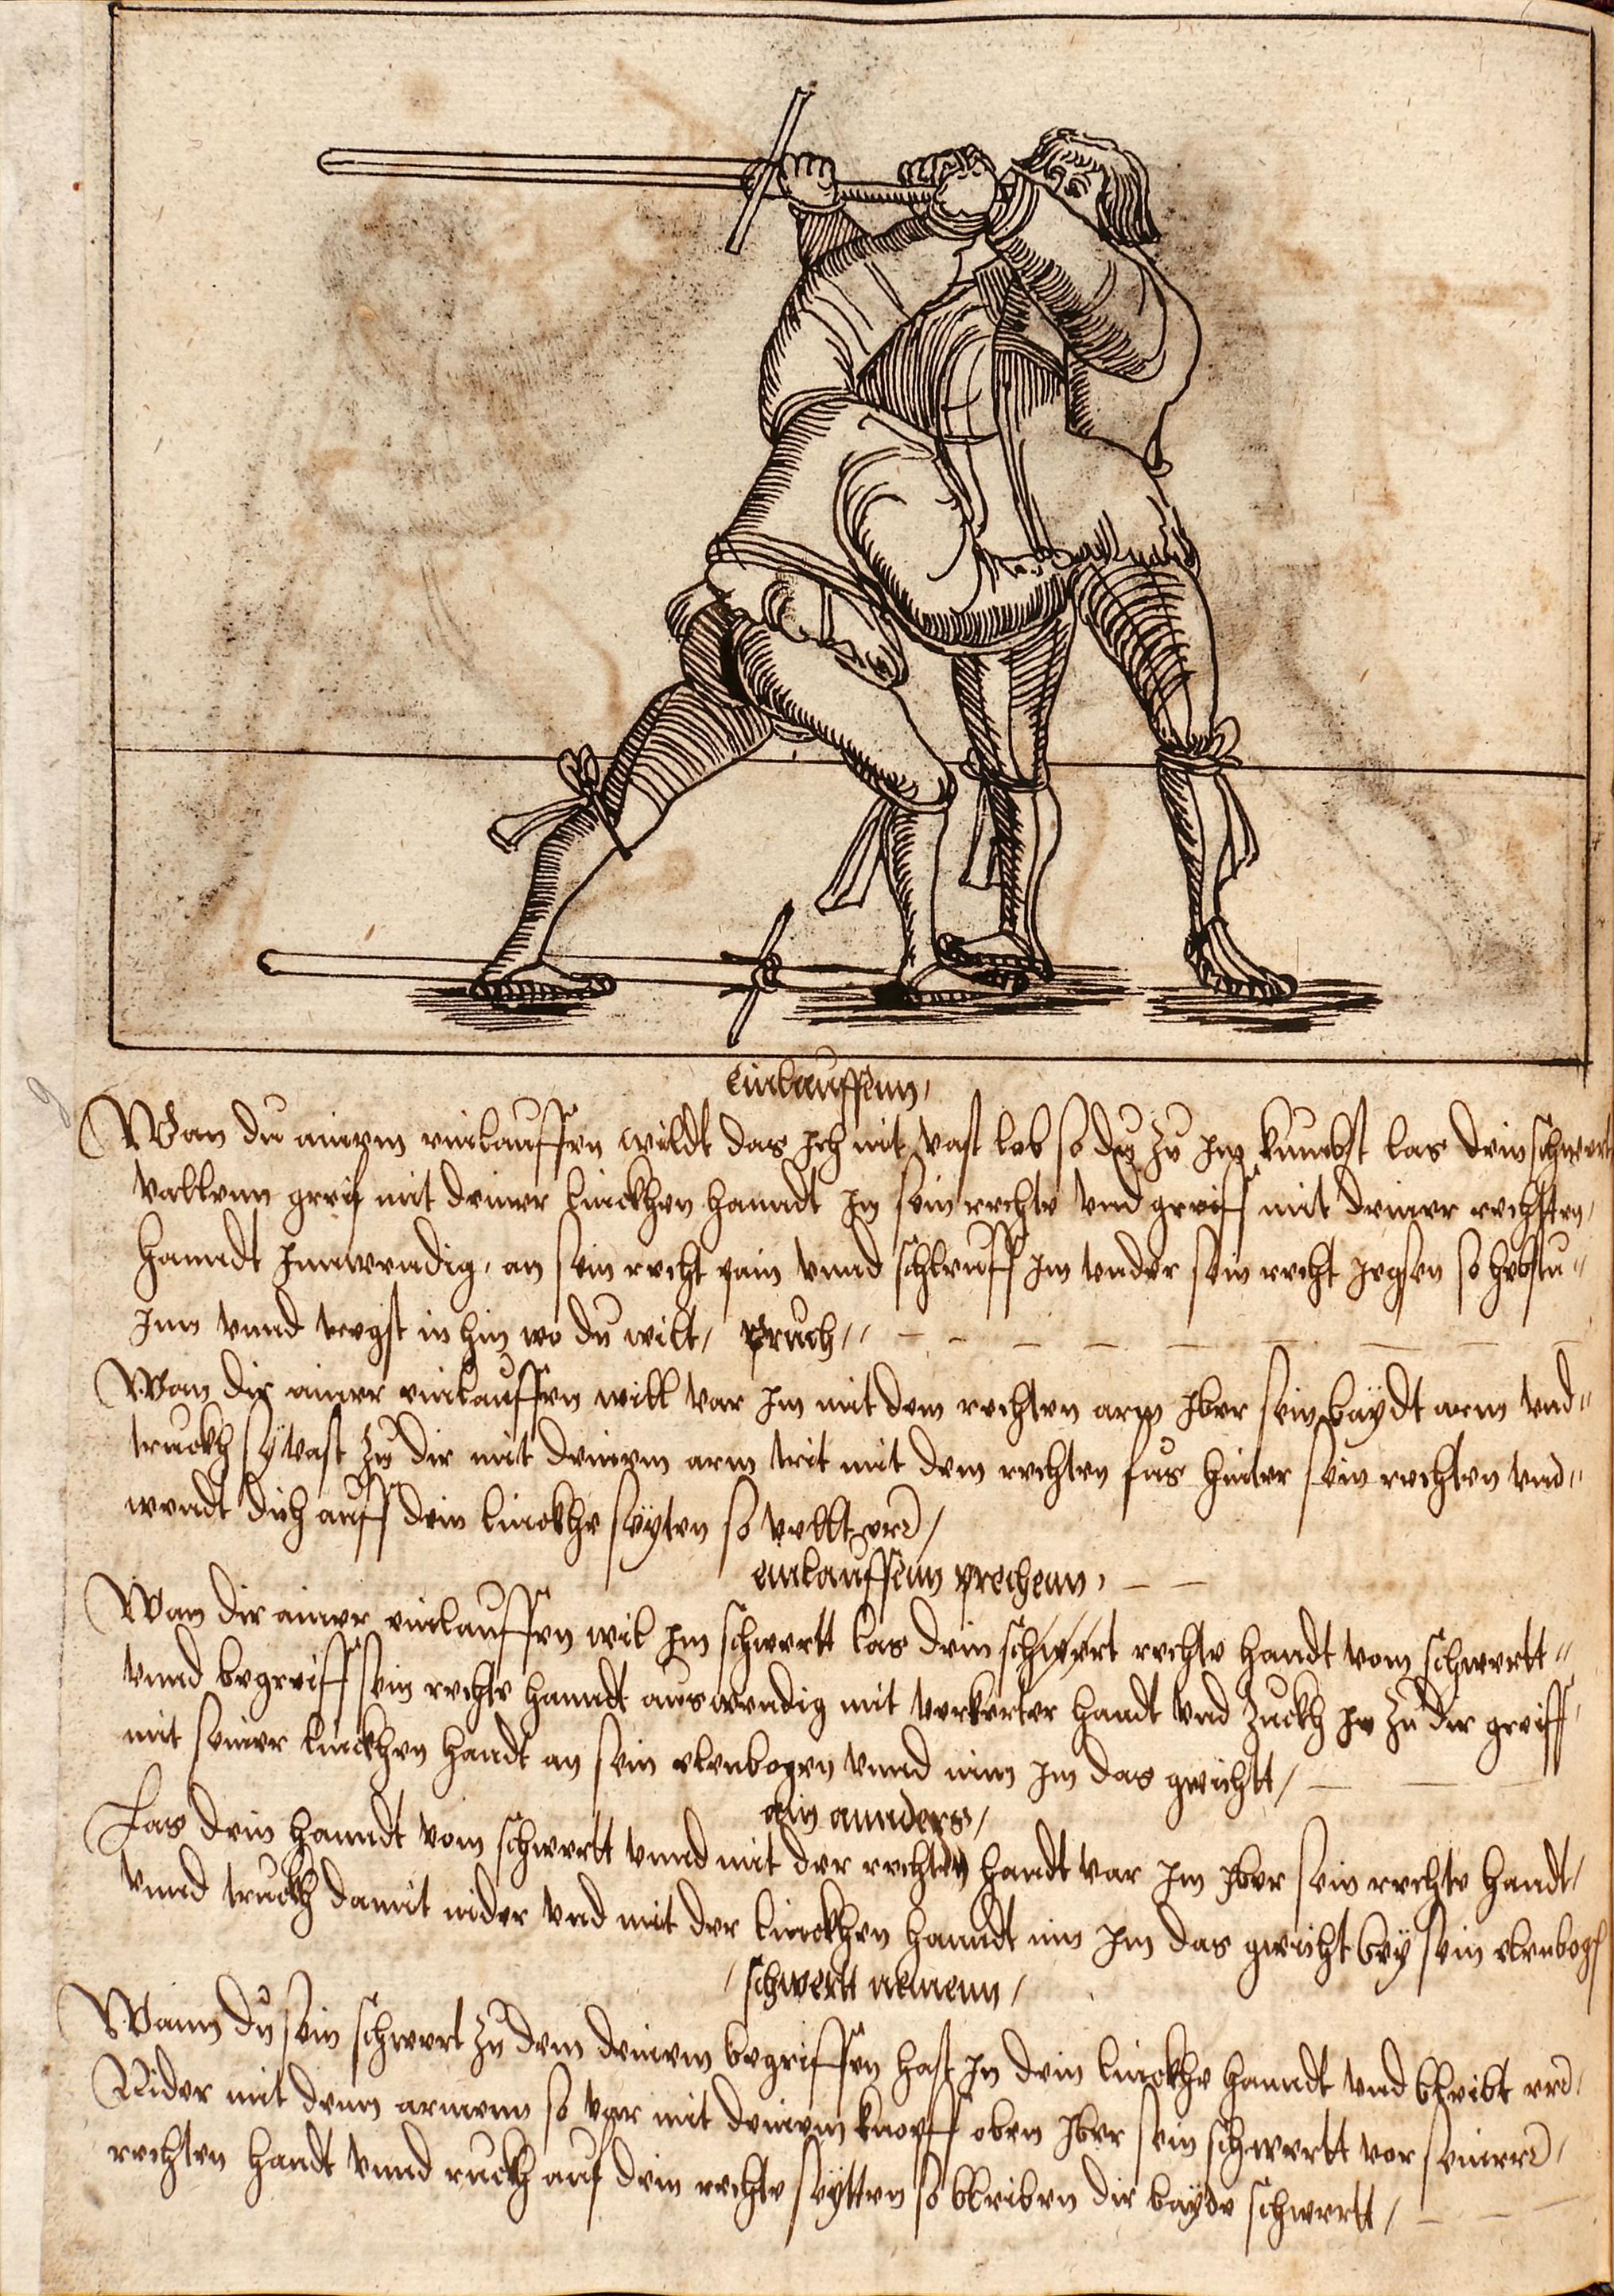 Einlauffenn,
Wan du ainem einlauffen wildt das Ich nit vast lob so du zu Im kumbst las dein schwert
vallenn greif mit deiner linckhen hanndt In sein rechte vnd greiff mit deiner rechten,
hanndt Innwendig, an sein recht pain vnnd schleuff Im vnder sein recht Iegsen so hebstu
Inn vnnd tregst in hin wo du wilt / Pruch,,
Wan dir ainer einlauffen will var Im mit dem rechten arm Iber sein baydt arm vnd
truckh sÿ vast zu dir mit deinem arm trit mit dem rechten fus hinter sein rechten vnd
wendt dich auff dein linckhe seÿten so vellt er /
Einlauffenn prechenn,
Wan dir ainer einlauffen wil Im schwertt las dein schwert rechte handt vom schwertt
vnnd begreiff sein rechte hanndt auswendig mit verkerter handt vnd zuckh In zu dir greiff
mit seiner linckhen handt an sein elenbogen vnnd nim Im das gwichtt /
ain annders /
Las dein hanndt vom schwertt vnnd mit der rechten handt var Im Iber sein rechte handt /
vnnd truckh damit nider vnd mit der linckhen hanndt nim Im das gwicht beÿ sein elenbogn
/ schwertt nemenn /
Wann du sein schwert zu dem deinem begriffen hast In dein linckhe hanndt vnd bleibt er
Nider mit denn armenn so var mit deinem knopff oben Iber sein schwertt vor seiner
rechten handt vnnd ruckh auf dein rechte seÿtten so bleiben dir bayde schwertt /